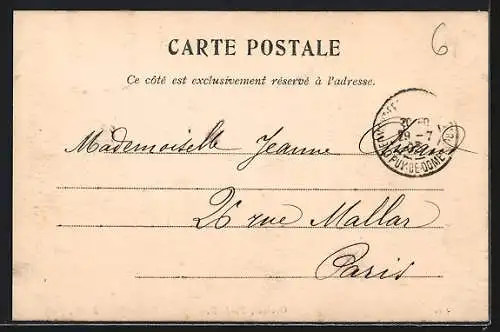 6
CARTE POSTALE
Ce côté est exclusivement réservé à l'adresse.
29 -7
PUY-DE-DOME
Mademoiselle Jeanne
26 rue Mallar
Paris